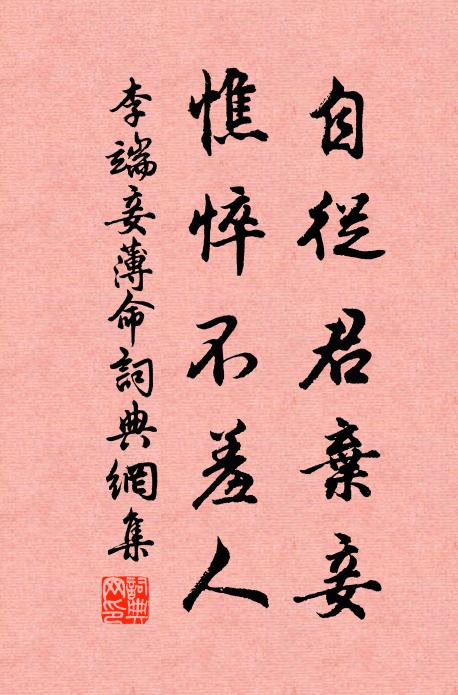 自從君棄妾
憔悴不羞人
李端妾薄命詞典網集
詞典网印